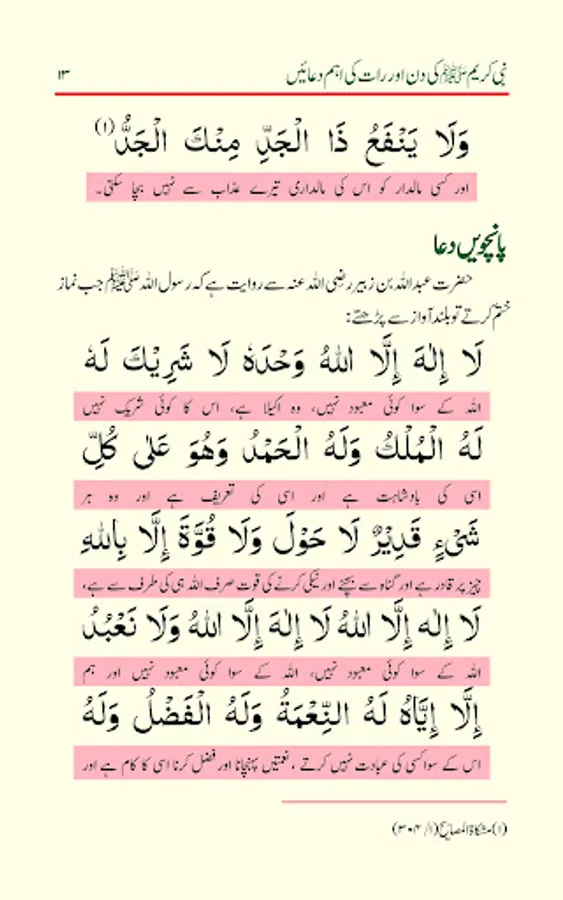 نبی کریم ﷺ کی دن اور رات کی اہم دعائیں ۱۳
وَلَا يَنْفَعُ ذَا الْجَدِّ مِنْكَ الْجَدُّ (۱)
اور کسی مالدار کو اس کی مالداری تیرے عذاب سے نہیں بچا سکتی۔
پانچویں دعا
حضرت عبداللہ بن زبیر رضی اللہ عنہ سے روایت ہے کہ رسول اللہ ﷺ جب نماز
ختم کرتے تو بلند آواز سے پڑھتے:
لَا إِلٰهَ إِلَّا اللهُ وَحْدَهٗ لَا شَرِيْكَ لَهٗ
اللہ کے سوا کوئی معبود نہیں، وہ اکیلا ہے، اس کا کوئی شریک نہیں
لَهُ الْمُلْكُ وَلَهُ الْحَمْدُ وَهُوَ عَلٰى كُلِّ
اسی کی بادشاہت ہے اور اسی کی تعریف ہے اور وہ ہر
شَىْءٍ قَدِيْرٌ لَا حَوْلَ وَلَا قُوَّةَ إِلَّا بِاللهِ
چیز پر قادر ہے اور گناہ سے بچنے اور نیکی کرنے کی قوت صرف اللہ ہی کی طرف سے ہے،
لَا إِلٰه إِلَّا اللهُ لَا إِلٰهَ إِلَّا اللهُ وَلَا نَعْبُدُ
اللہ کے سوا کوئی معبود نہیں، اللہ کے سوا کوئی معبود نہیں اور ہم
إِلَّا إِيَّاهُ لَهُ النِّعْمَةُ وَلَهُ الْفَضْلُ وَلَهُ
اس کے سوا کسی کی عبادت نہیں کرتے، نعمتیں پہنچانا اور فضل کرنا اسی کا کام ہے اور
(۱) مشکاۃ المصابیح (۱/ ۳۰۴)